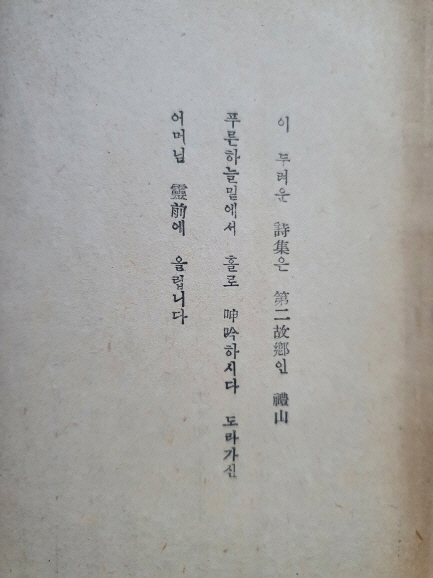 이 두려운 詩集은 第二故鄕인 禮山
푸른하늘밑에서 홀로 呻吟하시다 도라가신
어머님 靈前에 올립니다